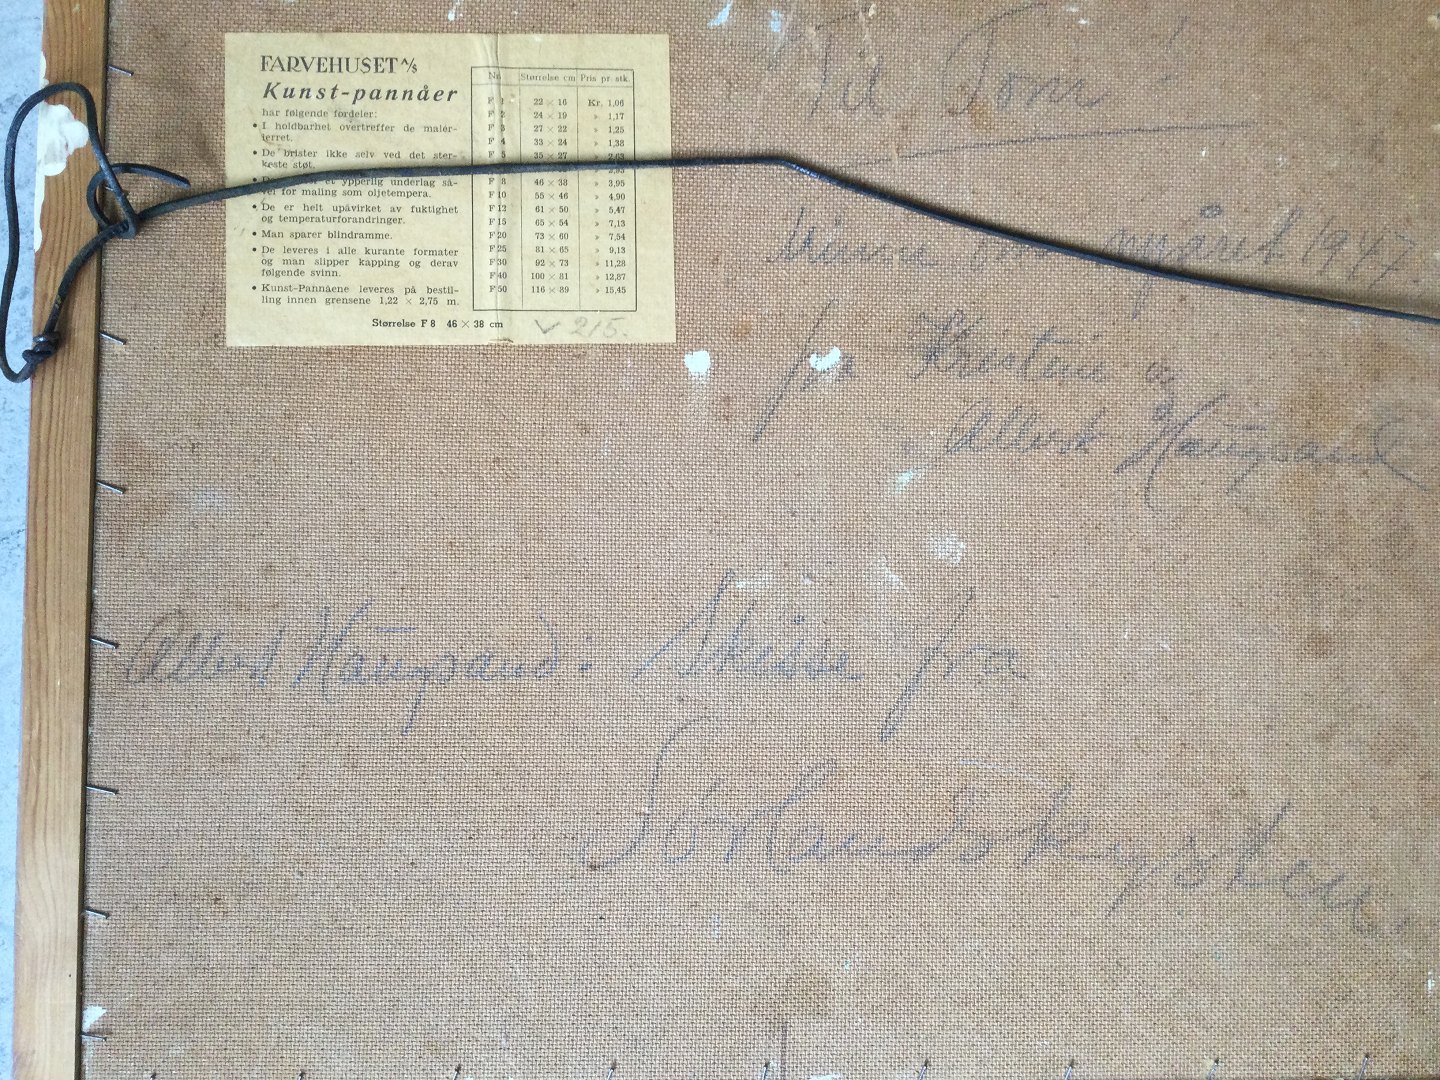 FARVEHUSET A/S
Kunst-pannåer
har følgende fordeler:
• I holdbarhet overtreffer de malér-
lerret.
• De brister ikke selv ved det ster-
keste støt.
• et ypperlig underlag så-
vel for maling som oljetempera.
• De er helt upåvirket av fuktighet
og temperaturforandringer.
• Man sparer blindramme.
• De leveres i alle kurante formater
og man slipper kapping og derav
følgende svinn.
• Kunst-Pannåene leveres på bestil-
ling innen grensene 1,22 × 2,75 m.
Nr. Størrelse cm Pris pr. stk.
F 1 22 × 16 Kr. 1,06
F 2 24 × 19 » 1,17
F 3 27 × 22 » 1,25
F 4 33 × 24 » 1,38
F 5 35 × 27 » 2,03
F 8 46 × 38 » 3,95
F 10 55 × 46 » 4,90
F 12 61 × 50 » 5,47
F 15 65 × 54 » 7,13
F 20 73 × 60 » 7,54
F 25 81 × 65 » 9,13
F 30 92 × 73 » 11,28
F 40 100 × 81 » 12,87
F 50 116 × 89 » 15,45
Størrelse F 8 46 × 38 cm
215.
Til !
nyåret 1947.
fra Kristine og
Allert Haugsand
Allert Haugsand: Skisse fra
Sørlandskysten.